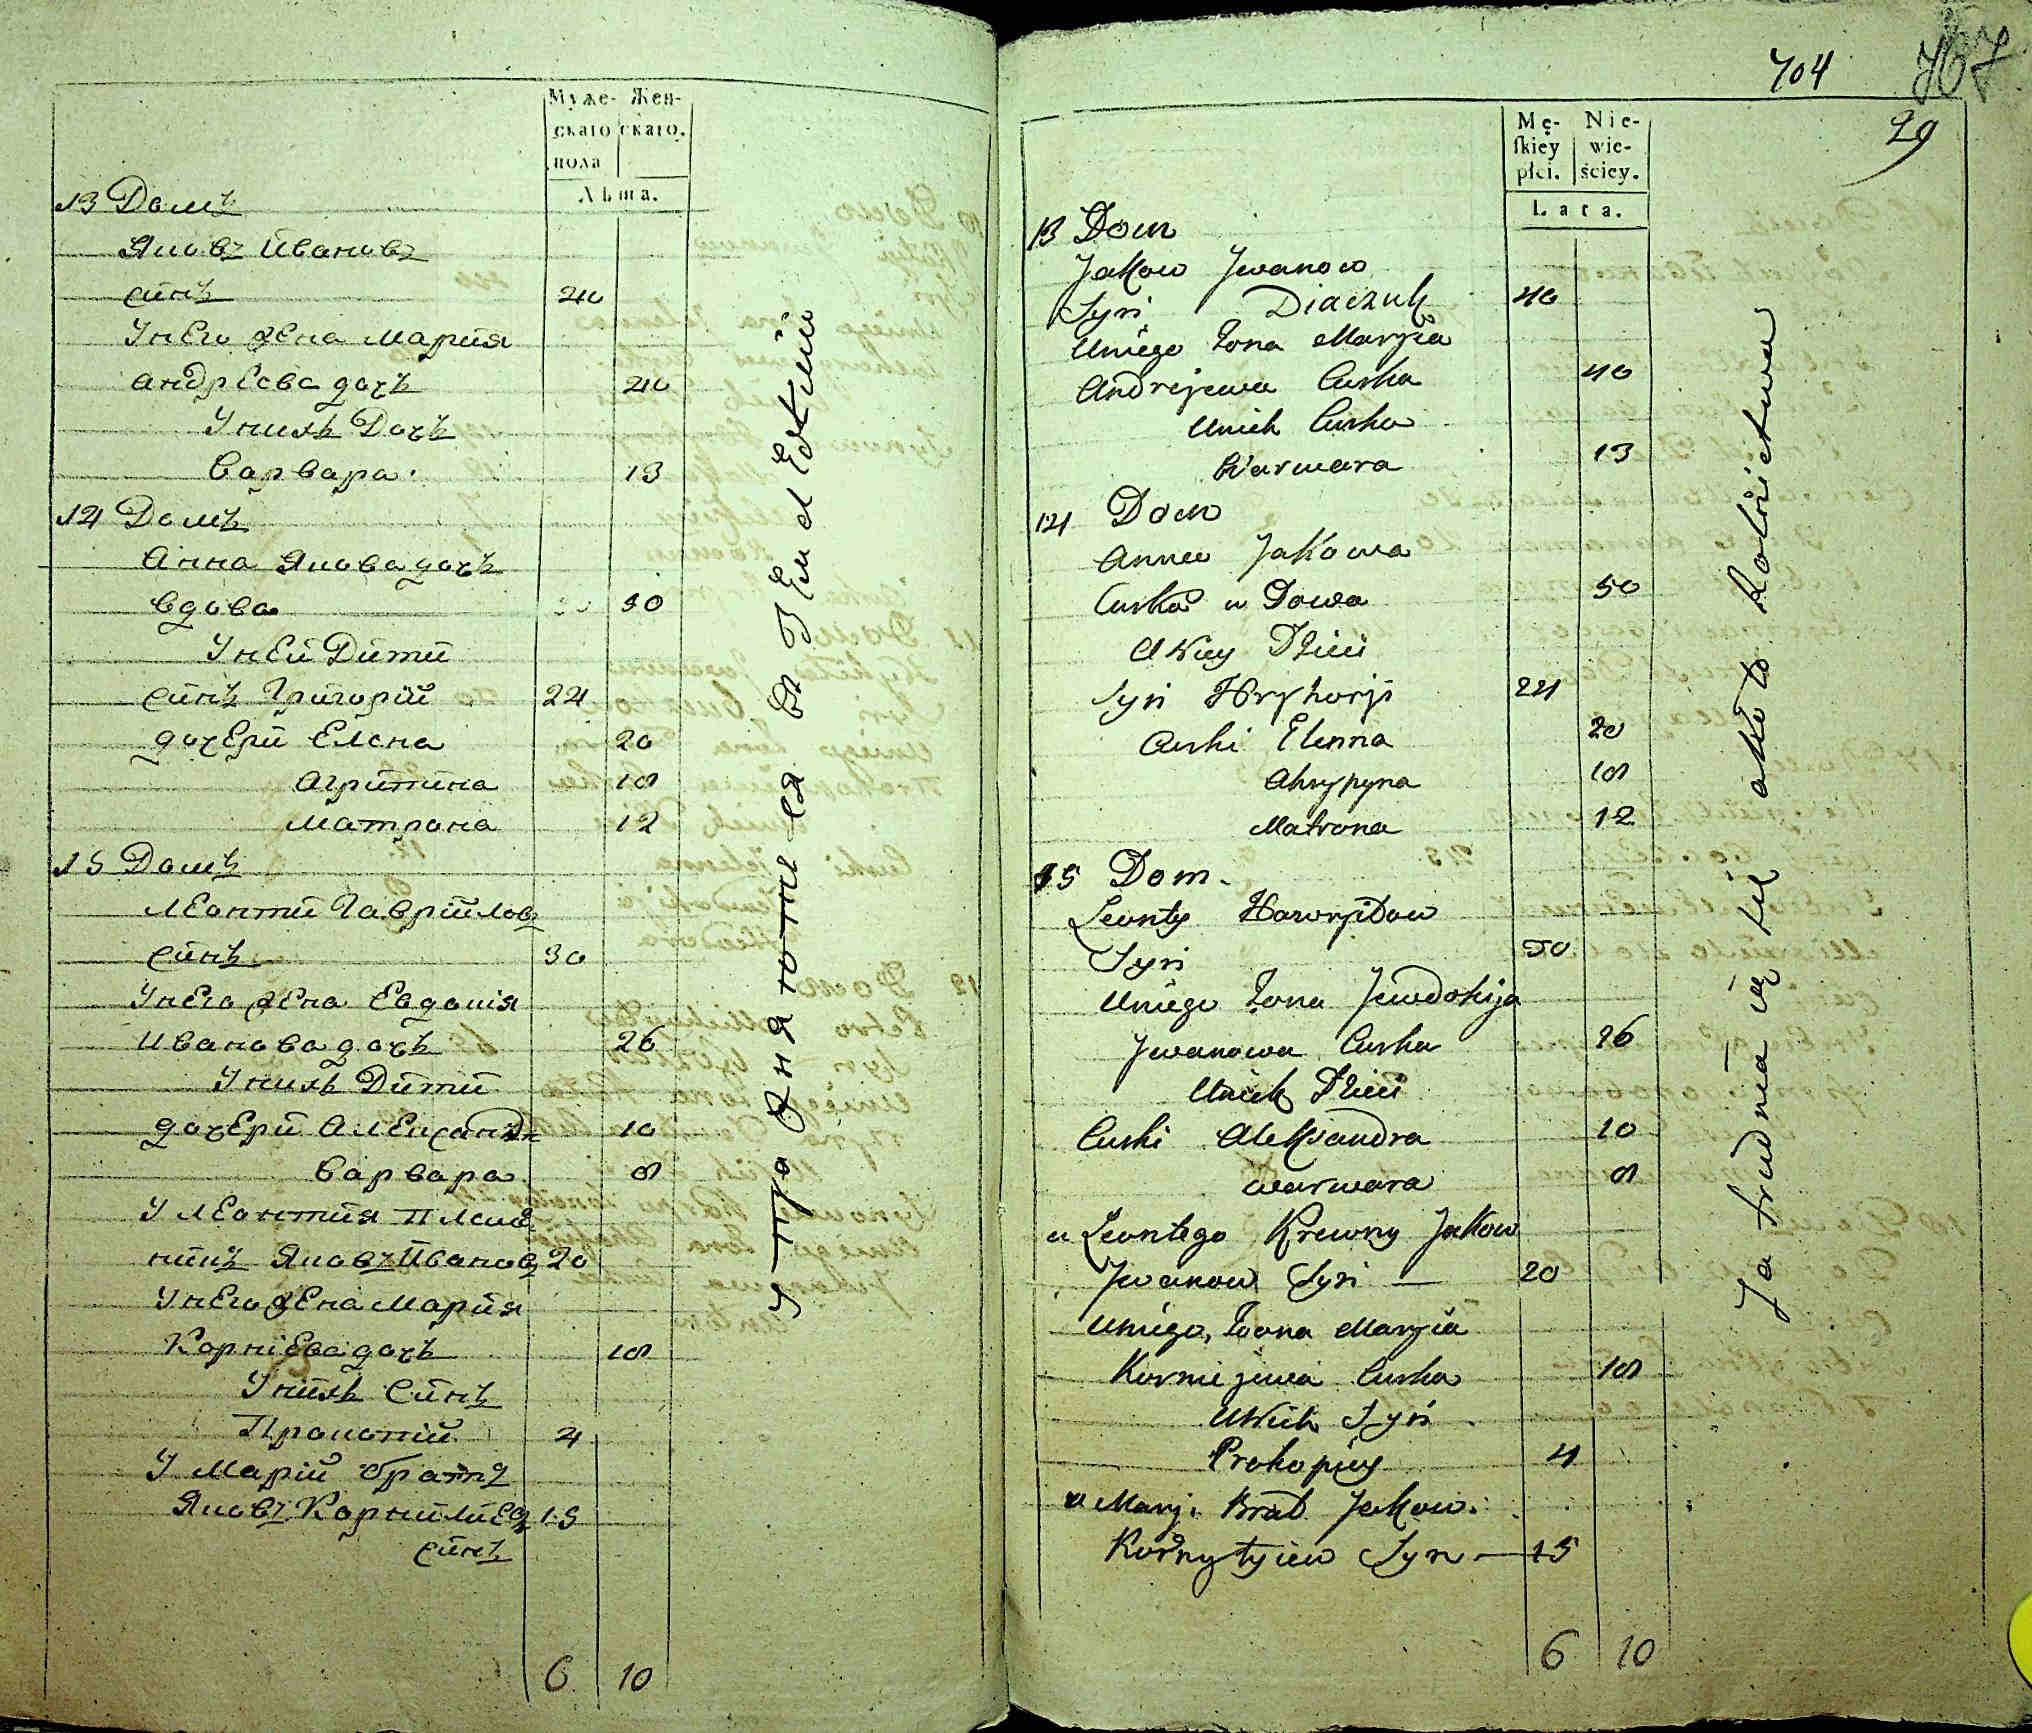 Муже- Жен-
скаго скаго.
пола
Лѣта.
13 Домъ
Яковъ Ивановъ
синъ 40
Унего жена Мария
Андрѣева дочъ 40
Унихъ Дочъ
Варвара 13
14 Домъ
Анна Якова дочъ
вдова 50
Уней Дити
синъ Григорій 24
дочери Елена 20
Агрипина 18
Матрона 12
15 Домъ
Леонтий Гаврійловъ
синъ 30
Унего жена Евдокія
Иванова дочъ 26
Унихъ Дити
дочери Александра 10
Варвара 8
У Леонтия Племя
никъ Яковъ Ивановъ 20
Унего жена Мария
Корніева дочъ 18
Унихъ Синъ
Прокопій 4
У Марій братъ
Яковъ Корнилиевъ 15
синъ
6 10
упражняются в земледелии
704 767
29
Mę- Nie-
ſkiey wie-
płci. ściey.
Lata.
13 Dom
Jakow Jwanow
Syn Diaczuk 40
Uniego Żona Maryia
Andrejewa Curka 40
Unich Curka
Warwara 13
14 Dom
Anna Jakowa
Curka w Dowa 50
U Niey Dzieci
Syn Hryhorji 24
Curki Elenna 20
Ahrypyna 18
Matrona 12
15 Dom.
Leonty Hawryłow
Syn 30
Uniego Żona Jewdokija
Jwanowa Curka 26
Unich Dzieci
Curki Aleksandra 10
Warwara 8
u Leontego Krewny Jakow
Jwanow Syn — 20
Uniego Żona Maryia
Korniejewa Curka 18
UNich Syn
Prokopiey 4
u Maryi Brat Jakow
Kornyłyiew Syn — 15
6 10
Ja trudnia ią się około Rolnictwa